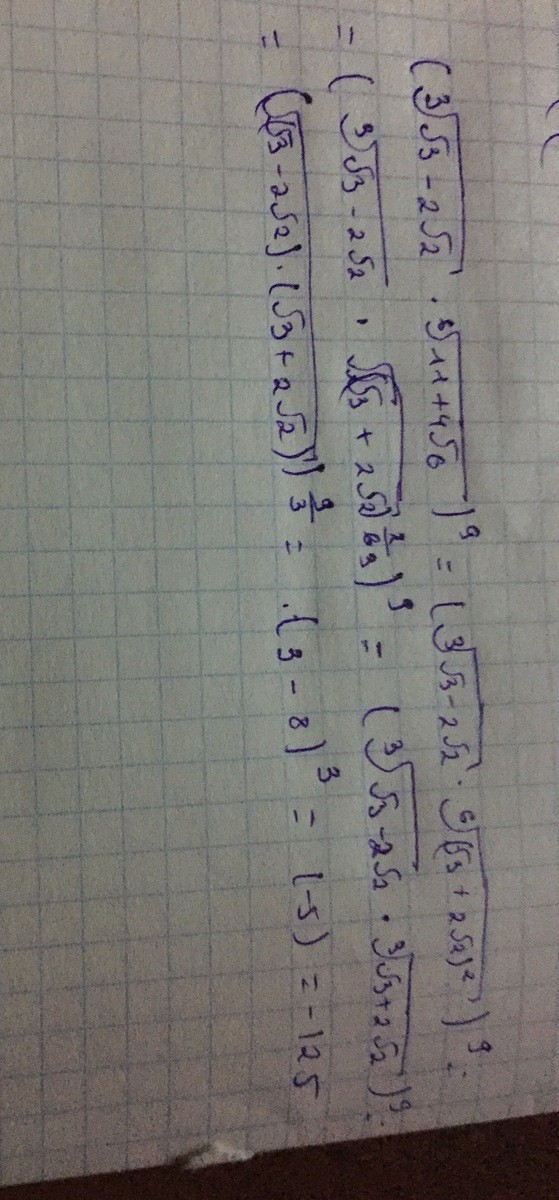 (∛(√3 - 2√2) · ⁶√(11+4√6))⁹ = (∛(√3-2√2) · ⁶√((√3 + 2√2)²))⁹ =
= (∛(√3-2√2) · √((√3 + 2√2)) )⁹ = (∛(√3-2√2) · ∛(√3+2√2))⁹ =
= (√((√3-2√2) · (√3+2√2)))^(9/3) = (3-8)³ = (-5) = -125